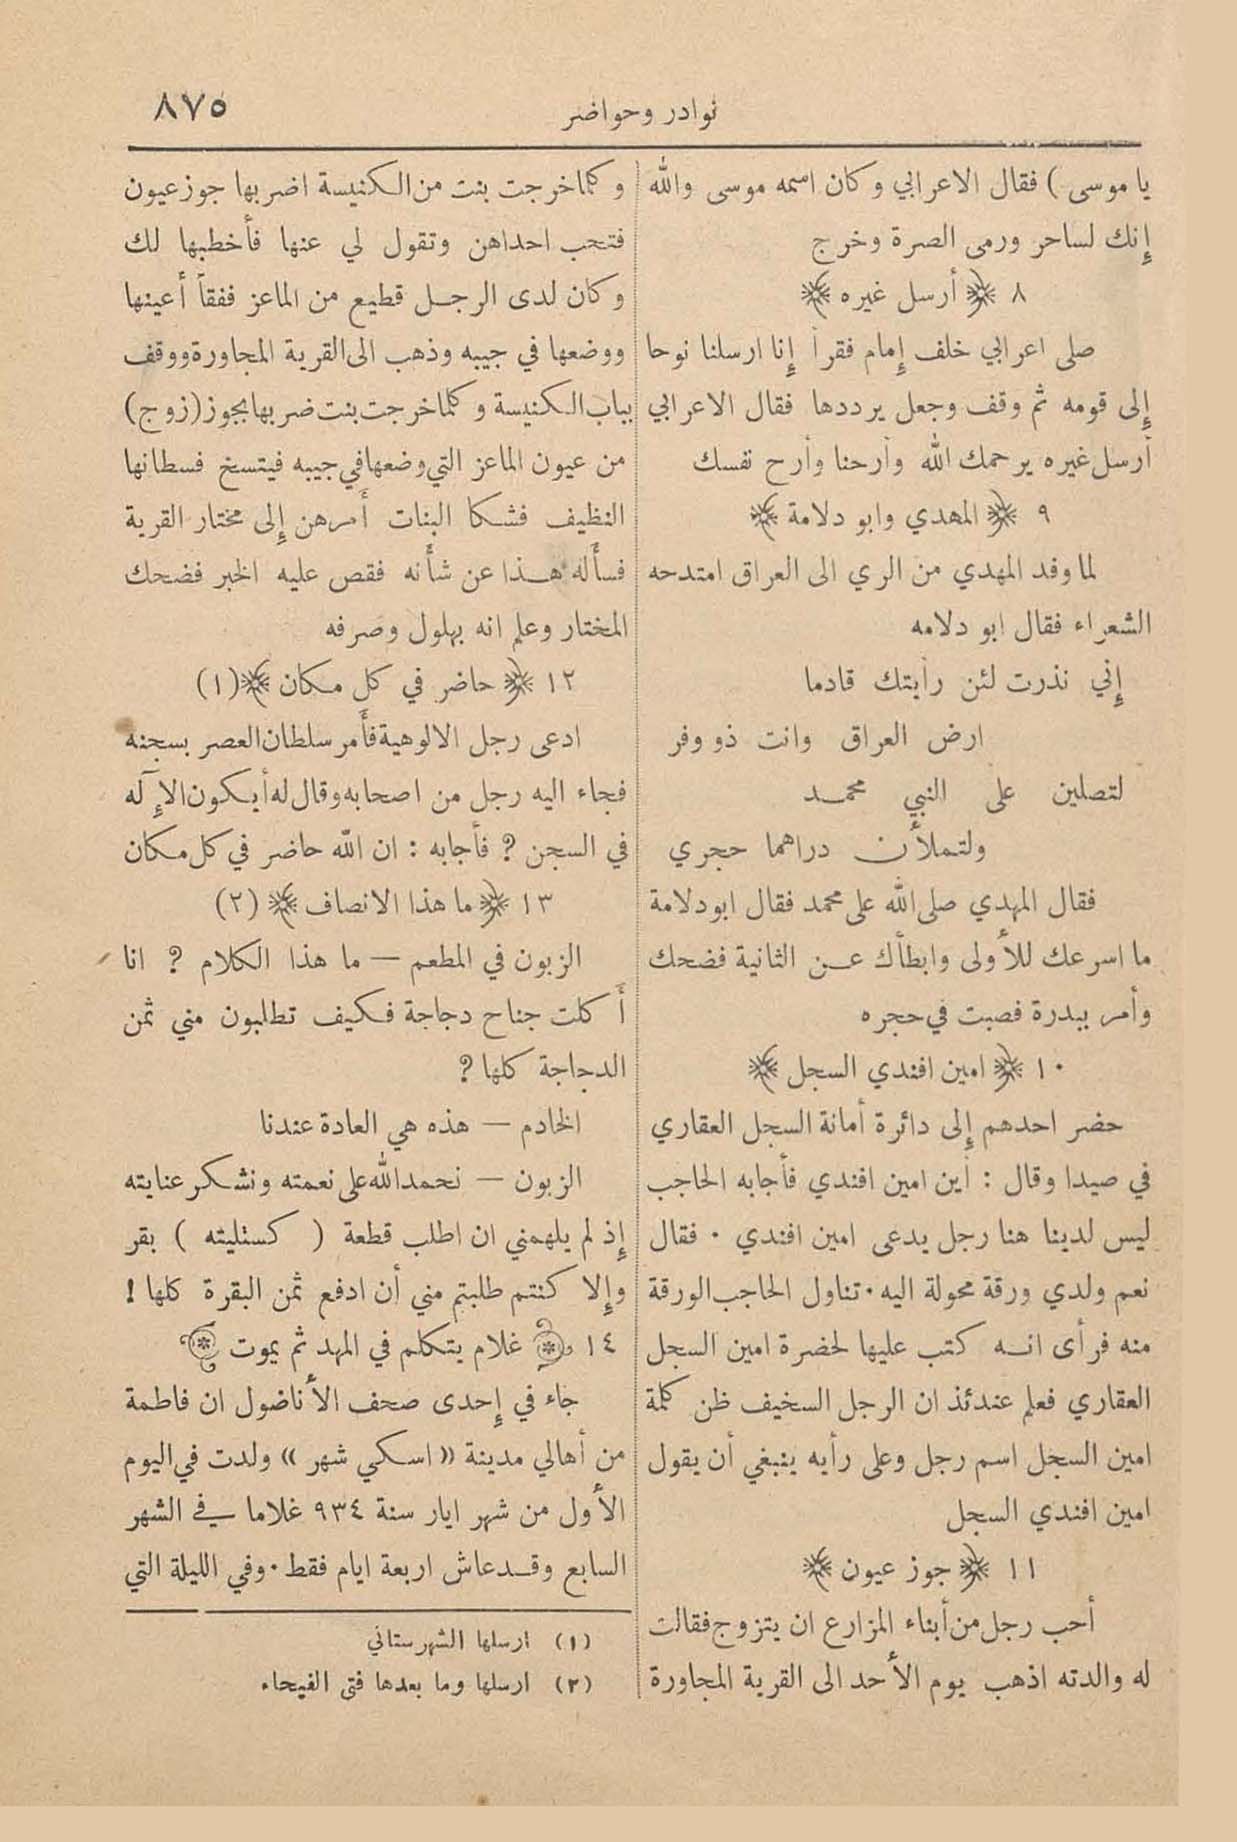 نوادر وحواضر
٨٧٥
يا موسى ) فقال الاعرابي وكان اسمه موسى والله
إنك لساحر ورمى الصرة وخرج
٨ ﴿ أرسل غيره ﴾
صلى اعرابي خلف إمام فقرأ إنا ارسلنا نوحا
إلى قومه ثم وقف وجعل يرددها فقال الاعرابي
أرسل غيره يرحمك الله وأرحنا وأرح نفسك
٩ ﴿ المهدي وابو دلامة ﴾
لما وفد المهدي من الري الى العراق امتدحه
الشعراء فقال ابو دلامه
إني نذرت لئن رأيتك قادما
ارض العراق وانت ذو وفر
لتصلين على النبي محمد
ولتملأن دراهما حجري
فقال المهدي صلى الله على محمد فقال ابو دلامة
ما اسرعك للأولى وابطأك عن الثانية فضحك
وأمر ببدرة فصبت في حجره
١٠ ﴿ امين افندي السجل ﴾
حضر احدهم إلى دائرة أمانة السجل العقاري
في صيدا وقال : أين امين افندي فأجابه الحاجب
ليس لدينا هنا رجل يدعى امين افندي ٠ فقال
نعم ولدي ورقة محولة اليه ٠ تناول الحاجب الورقة
منه فرأى انه كتب عليها لحضرة امين السجل
العقاري فعلم عندئذ ان الرجل السخيف ظن كلمة
امين السجل اسم رجل وعلى رأيه ينبغي أن يقول
امين افندي السجل
١١ ﴿ جوز عيون ﴾
أحب رجل من أبناء المزارع ان يتزوج فقالت
له والدته اذهب يوم الأحد الى القرية المجاورة
وكلما خرجت بنت من الكنيسة اضربها جوز عيون
فتحب احداهن وتقول لي عنها فأخطبها لك
وكان لدى الرجل قطيع من الماعز ففقأ أعينها
ووضعها في جيبه وذهب الى القرية المجاورة ووقف
بباب الكنيسة وكلما خرجت بنت ضربها بجوز (زوج)
من عيون الماعز التي وضعها في جيبه فيتسخ فسطانها
النظيف فشكا البنات أمرهن إلى مختار القرية
فسأله هذا عن شأنه فقص عليه الخبر فضحك
المختار وعلم انه بهلول وصرفه
١٢ ﴿ حاضر في كل مكان ﴾ (١)
ادعى رجل الالوهية فأمر سلطان العصر بسجنه
فجاء اليه رجل من اصحابه وقال له أيكون الإآله
في السجن ? فأجابه : ان الله حاضر في كل مكان
١٣ ﴿ ما هذا الانصاف ﴾ (٢)
الزبون في المطعم — ما هذا الكلام ? انا
أكلت جناح دجاجة فكيف تطلبون مني ثمن
الدجاجة كلها ?
الخادم — هذه هي العادة عندنا
الزبون — نحمد الله على نعمته ونشكر عنايته
إذ لم يلهمني ان اطلب قطعة ( كستليته ) بقر
وإلا كنتم طلبتم مني أن ادفع ثمن البقرة كلها !
١٤ ﴿ غلام يتكلم في المهد ثم يموت ﴾
جاء في إحدى صحف الأناضول ان فاطمة
من أهالي مدينة « اسكي شهر » ولدت في اليوم
الأول من شهر ايار سنة ٩٣٤ غلاما في الشهر
السابع وقد عاش اربعة ايام فقط ٠ وفي الليلة التي
(١) ارسلها الشهرستاني
(٢) ارسلها وما بعدها فتى الفيحاء